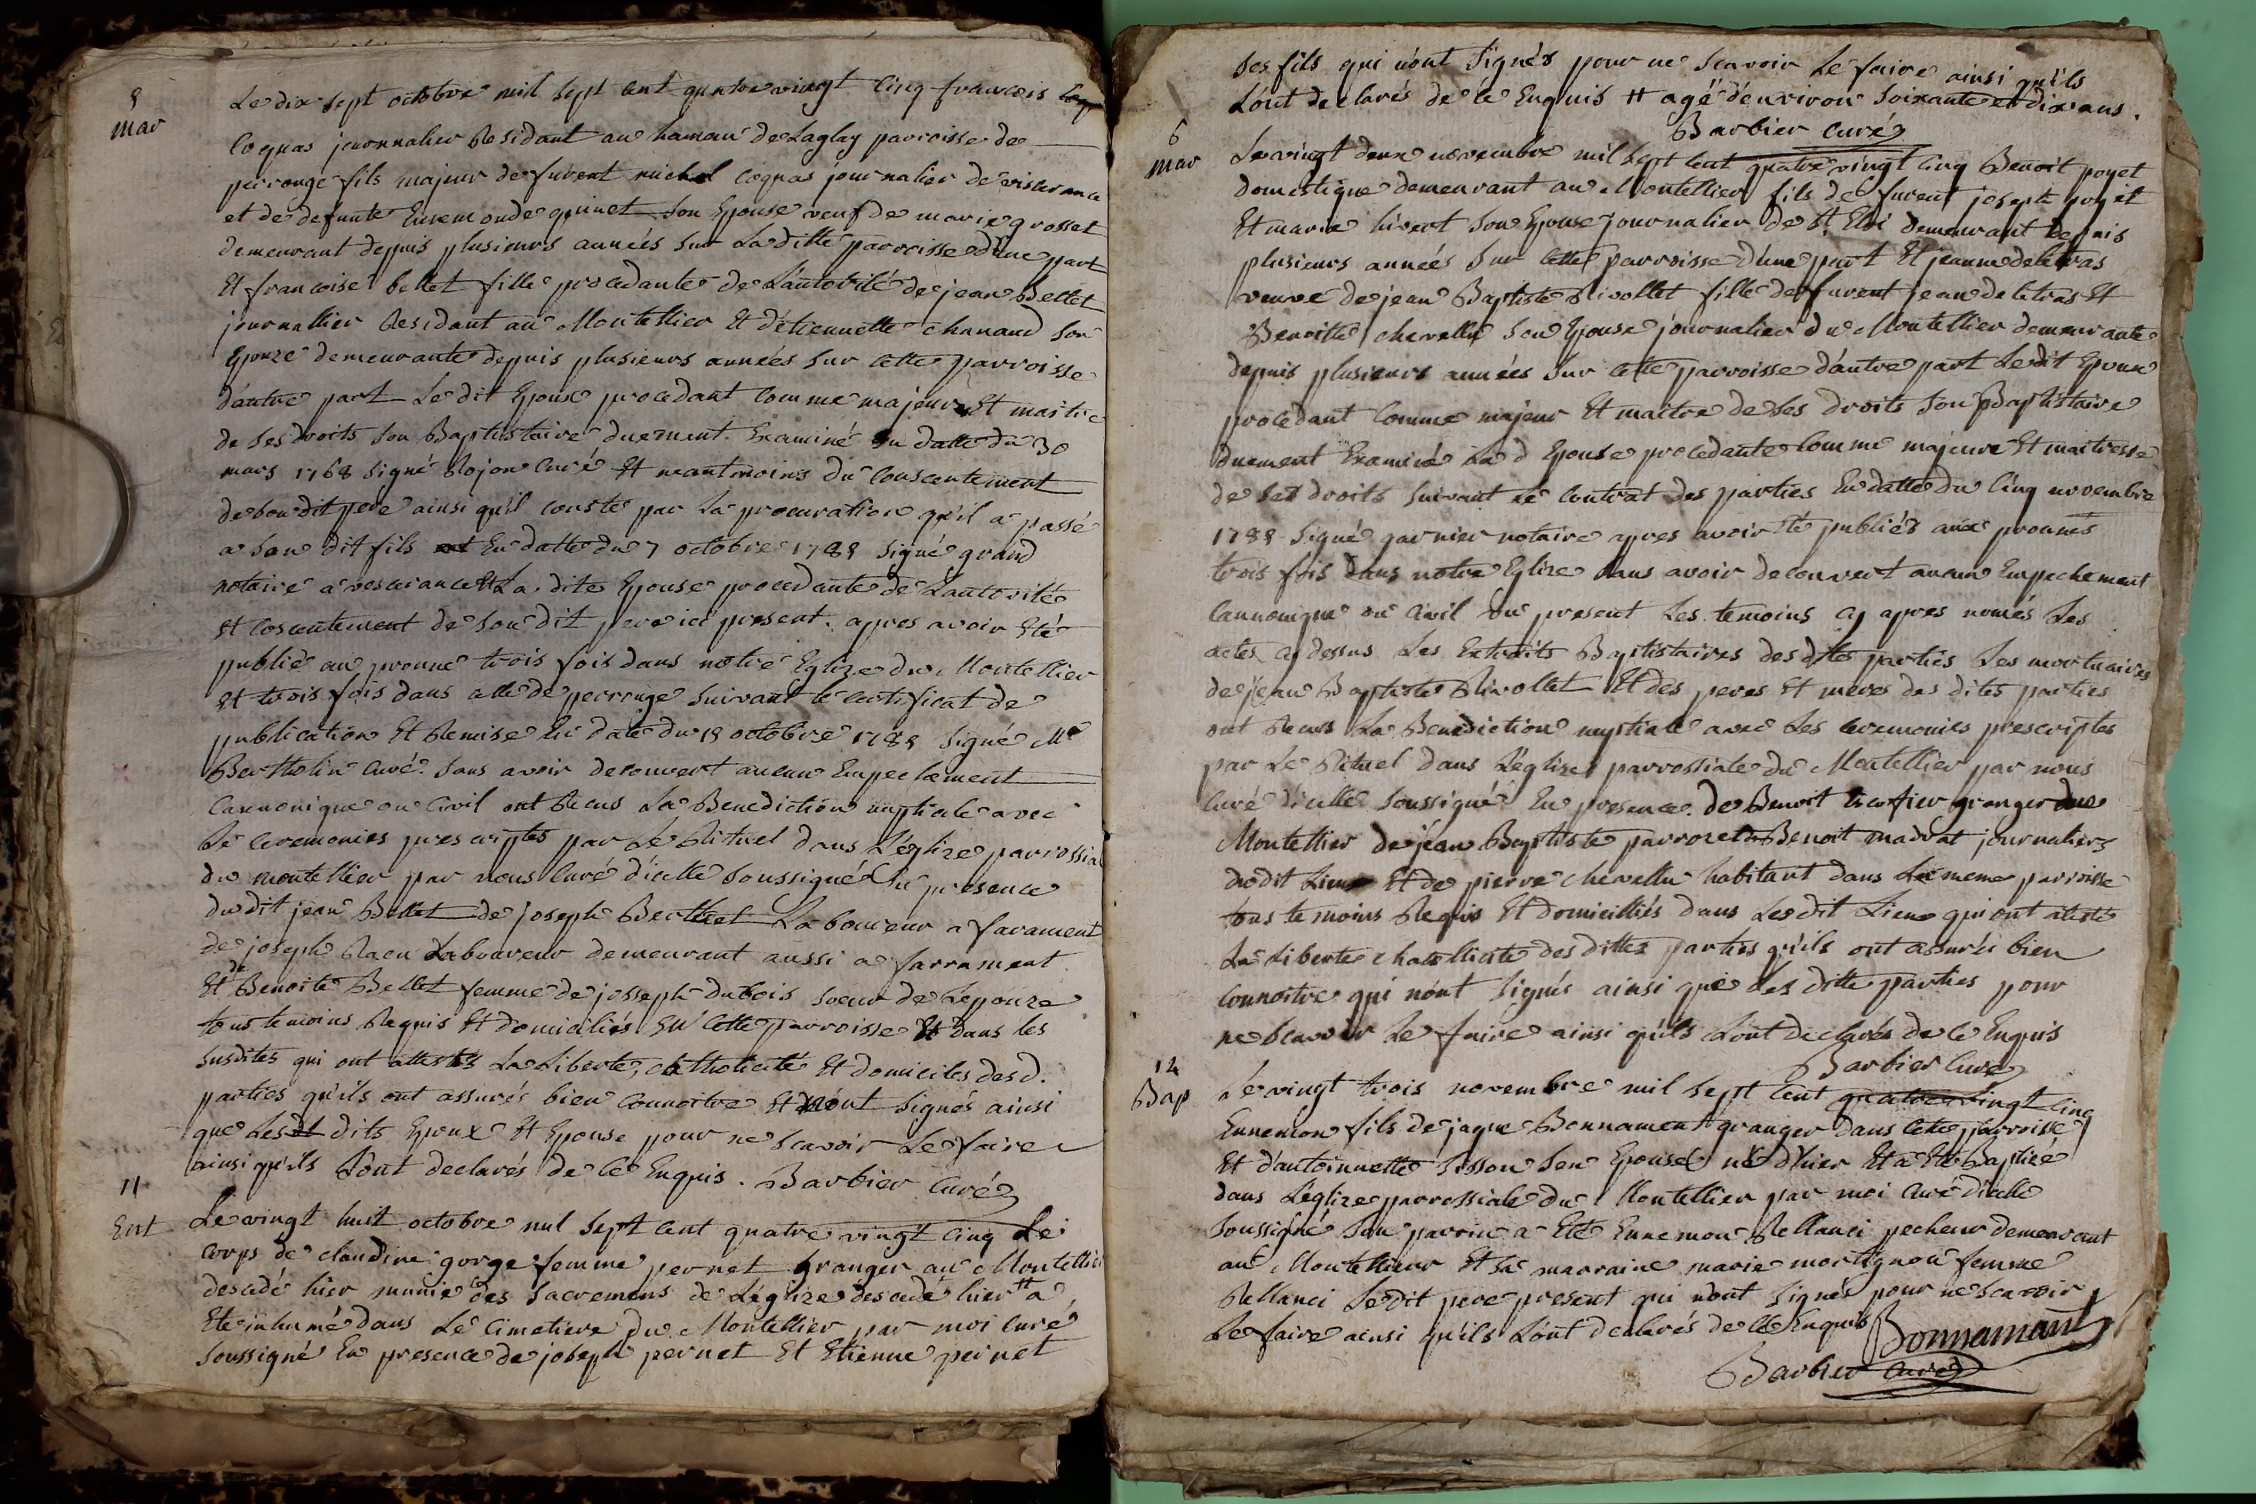 5
mar
Le dix sept octobre mil sept cent quatre vingt cinq francois
Coquas journalier Residant au hamau de Laglay parroisse de
perrouge fils majeur de furent michel coquas journalier de
et de defunte Enemonde quinet Son Epouse veuf de marie grosset
demeurant depuis plusieurs années sur La ditte parroisse d'une part
Et francoise bellet fille procedante de L'autorité de jean Bellet
journallier Residant au Montellier Et d'étiennette chanaud Son
Epouze demeurante depuis plusieurs années sur cette parroisse
d'autre part Le dit Epoux procedant Comme majeur Et maitre
de ses droits son Baptistaire duement Examiné En datte du 30
mars 1768 signé Rojon Curé Et neantmoins du Consentement
de son dit pere ainsi qu'il conste par La procuration qu'il a passé
a son dit fils En datte du 7 octobre 1785 signé grand
notaire a Et La dite Epouse procedante de L'autorité
Et cosentement de son dit pere ici present. apres avoir Eté
publié au prone trois fois dans notre Eglize du Montellier
Et trois fois dans celle de perrouge suivant le certificat de
publication Et Remise En date du 15 octobre 1785 signé Mr
Bertholin curé. sans avoir decouvert aucun Empechement
Cannonique ou Civil ont Recus La Benediction nuptiale avec
Le ceremonies prescriptes par Le Rituel dans L'églize parrossial
du montellier par nous Curé d'icelle soussigné En presence
du dit jean Bellet de joseph Berthet Laboureur a faramont
de joseph Raen Laboureur demeurant aussi a farramont
Et de Benoite Bellet femme de josseph dubois soeur de Lepouze
tous temoins Requis Et domiciliés En cette parroisse Et dans les
susdites qui ont attestés La Liberté, catholicité Et domiciles des d.
parties qu'ils ont assurés bien connoitre Et n'ont signés ainsi
que Les dits Epoux Et Epouse pour ne scavoir Le faire
ainsi qu'ils L'ont declarés de Ce Enquis. Barbier Curé
11
Ent
Le vingt huit octobre mil sept cent quatre vingt cinq Le
corps de claudine gorge femme pernet granger au Montellier
descedé hier munie des Sacremens de L'églize descedé hier # a
Eté inhumé dans Le Cimetiere du Montellier par moi Curé
soussigné En presence de joseph pernet Et Etienne pernet
ses fils qui n'ont signés pour ne scavoir Le faire ainsi qu'ils
L'ont declarés de ce Enquis # agé d'environ soixante et dix ans.
Barbier curé
6
mar
Le vingt deux novembre mil sept cent quatre vingt cinq Benoit poyet
domestique demeurant au Montellier fils de furent joseph poyet
Et marie hivert son Epouse journalier de St. Eloi demeurant depuis
plusieurs années sur cette parroisse d'une part Et jeanne deletras
veuve de jean Baptiste Rivollet fille de furent jean deletras Et
Benoitte chevellu son Epouse journalier du Montellier demeurante
depuis plusieurs années sur cette parroisse d'autre part Le dit Epoux
procedant Comme majeur Et maitre de ses droits son Baptistaire
duement Examiné La d Epouse procedante Comme majeure Et maitresse
de ses droits suivant le Contrat des parties En datte du Cinq novembre
1785 signé garnier notaire apres avoir té publiés aux prounes
trois fois dans notre Eglize sans avoir decouvert aucun Empechement
Cannonique ou civil vu present Les temoins cy apres només Les
actes cy dessus Les Extraits Baptistaires des dites parties Les mortuaires
de jean Baptiste Rivollet Et des peres Et meres des dites parties
ont Recus La Benediction nuptiale avec Les ceremonies prescriptes
par Le Rituel dans L'églize parrossiale du Montellier par nous
Curé d'icelle soussigné En presence de Benoit granger du
Montellier de jean Baptiste Benoit madrat journaliers
du dit Lieu Et de pierre chevellu habitant dans La meme parroisse
tous temoins Requis Et domicilliés dans Le dit Lieu qui ont atesté
La Liberte chatollicite des dittes parties qu'ils ont assurés bien
Connoitre qui n'ont signés ainsi que Les ditte parties pour
ne scavoir Le faire ainsi qu'ils L'ont declarés de ce Enquis
Barbier Curé
12
Bap
Le vingt trois novembre mil sept cent quatre vingt cinq
Ennemon fils de jaque Bonnament granger dans Cette parroisse
Et d'antoinnette sisson son Epouse né d'hier Et a Eté Baptizé
dans L'églize parrossiale du Montellier par moi curé d'icelle
soussigné son parrin a Eté Ennemon Rellanci pecheur demeurant
au Montellieur Et sa marraine marie mortignon femme
Rellanci Le dit pere present qui n'ont signés pour ne scavoir
Le faire ainsi qu'ils L'ont declarés de ce Enquis Bonnamant
Barbier curé